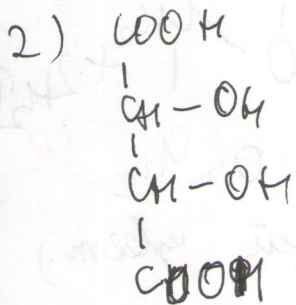 2) COOH
CH-OH
CH-OH
COOH